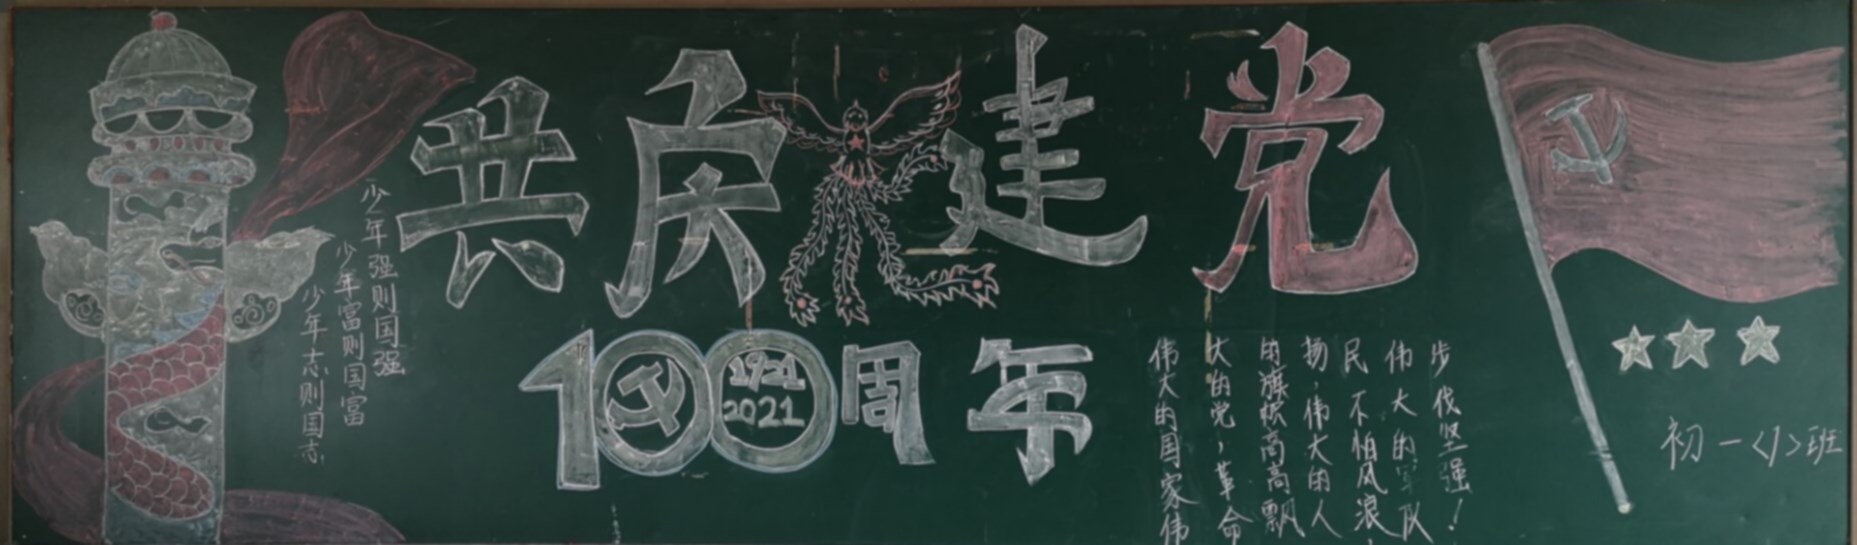 共庆建党
100周年
1921
2021
少年强则国强
少年富则国富
少年志则国志
伟大的国家伟
大的党，革命
的旗帜高高飘
扬，伟大的人
民不怕风浪，
伟大的军队
步伐坚强！
初一<1>班